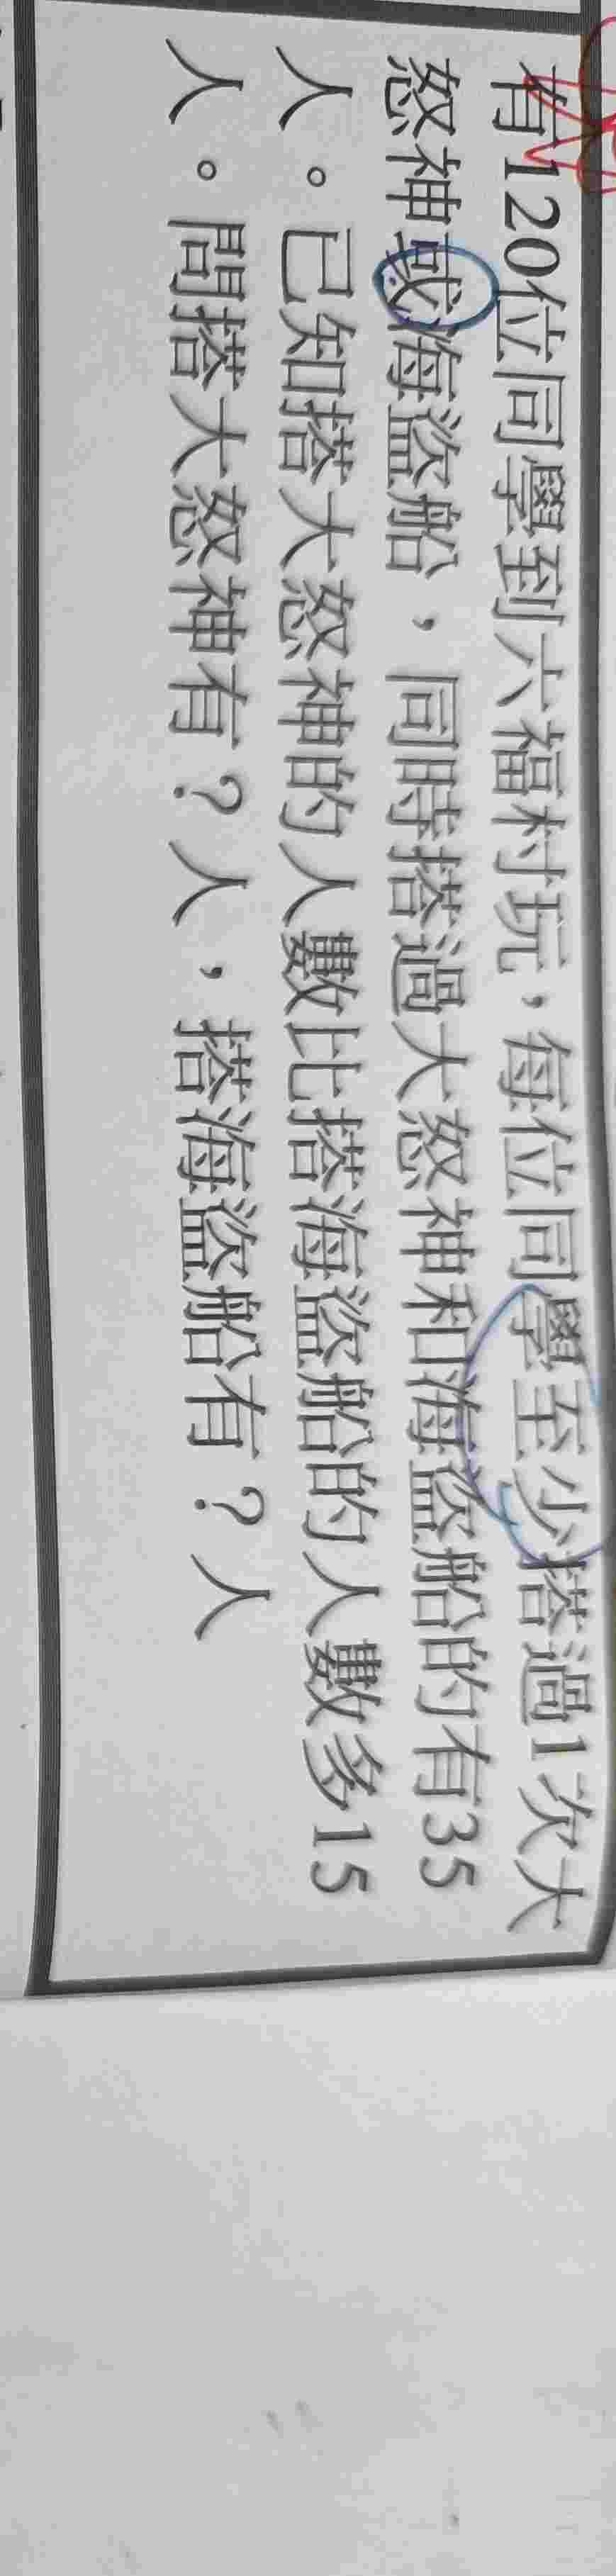 有120位同學到六福村玩，每位同學至少搭過1次大
怒神或海盜船，同時搭過大怒神和海盜船的有35
人。已知搭大怒神的人數比搭海盜船的人數多15
人。問搭大怒神有？人，搭海盜船有？人